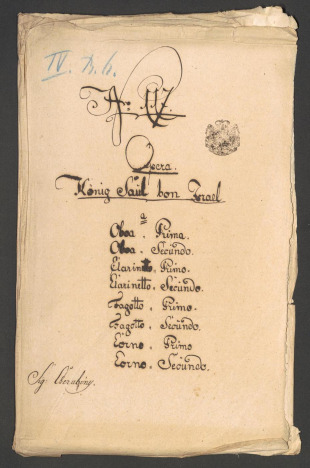 IV. h. h.
No: 117.
Opera.
König Saul von Israel
a
Oboa. Prima.
Oboa. Secundo.
Clarinetto. Primo.
Clarinetto. Secundo.
Fagotto. Primo.
Fagotto. Secundo.
Corno. Primo
Corno. Secundo.
Sig: